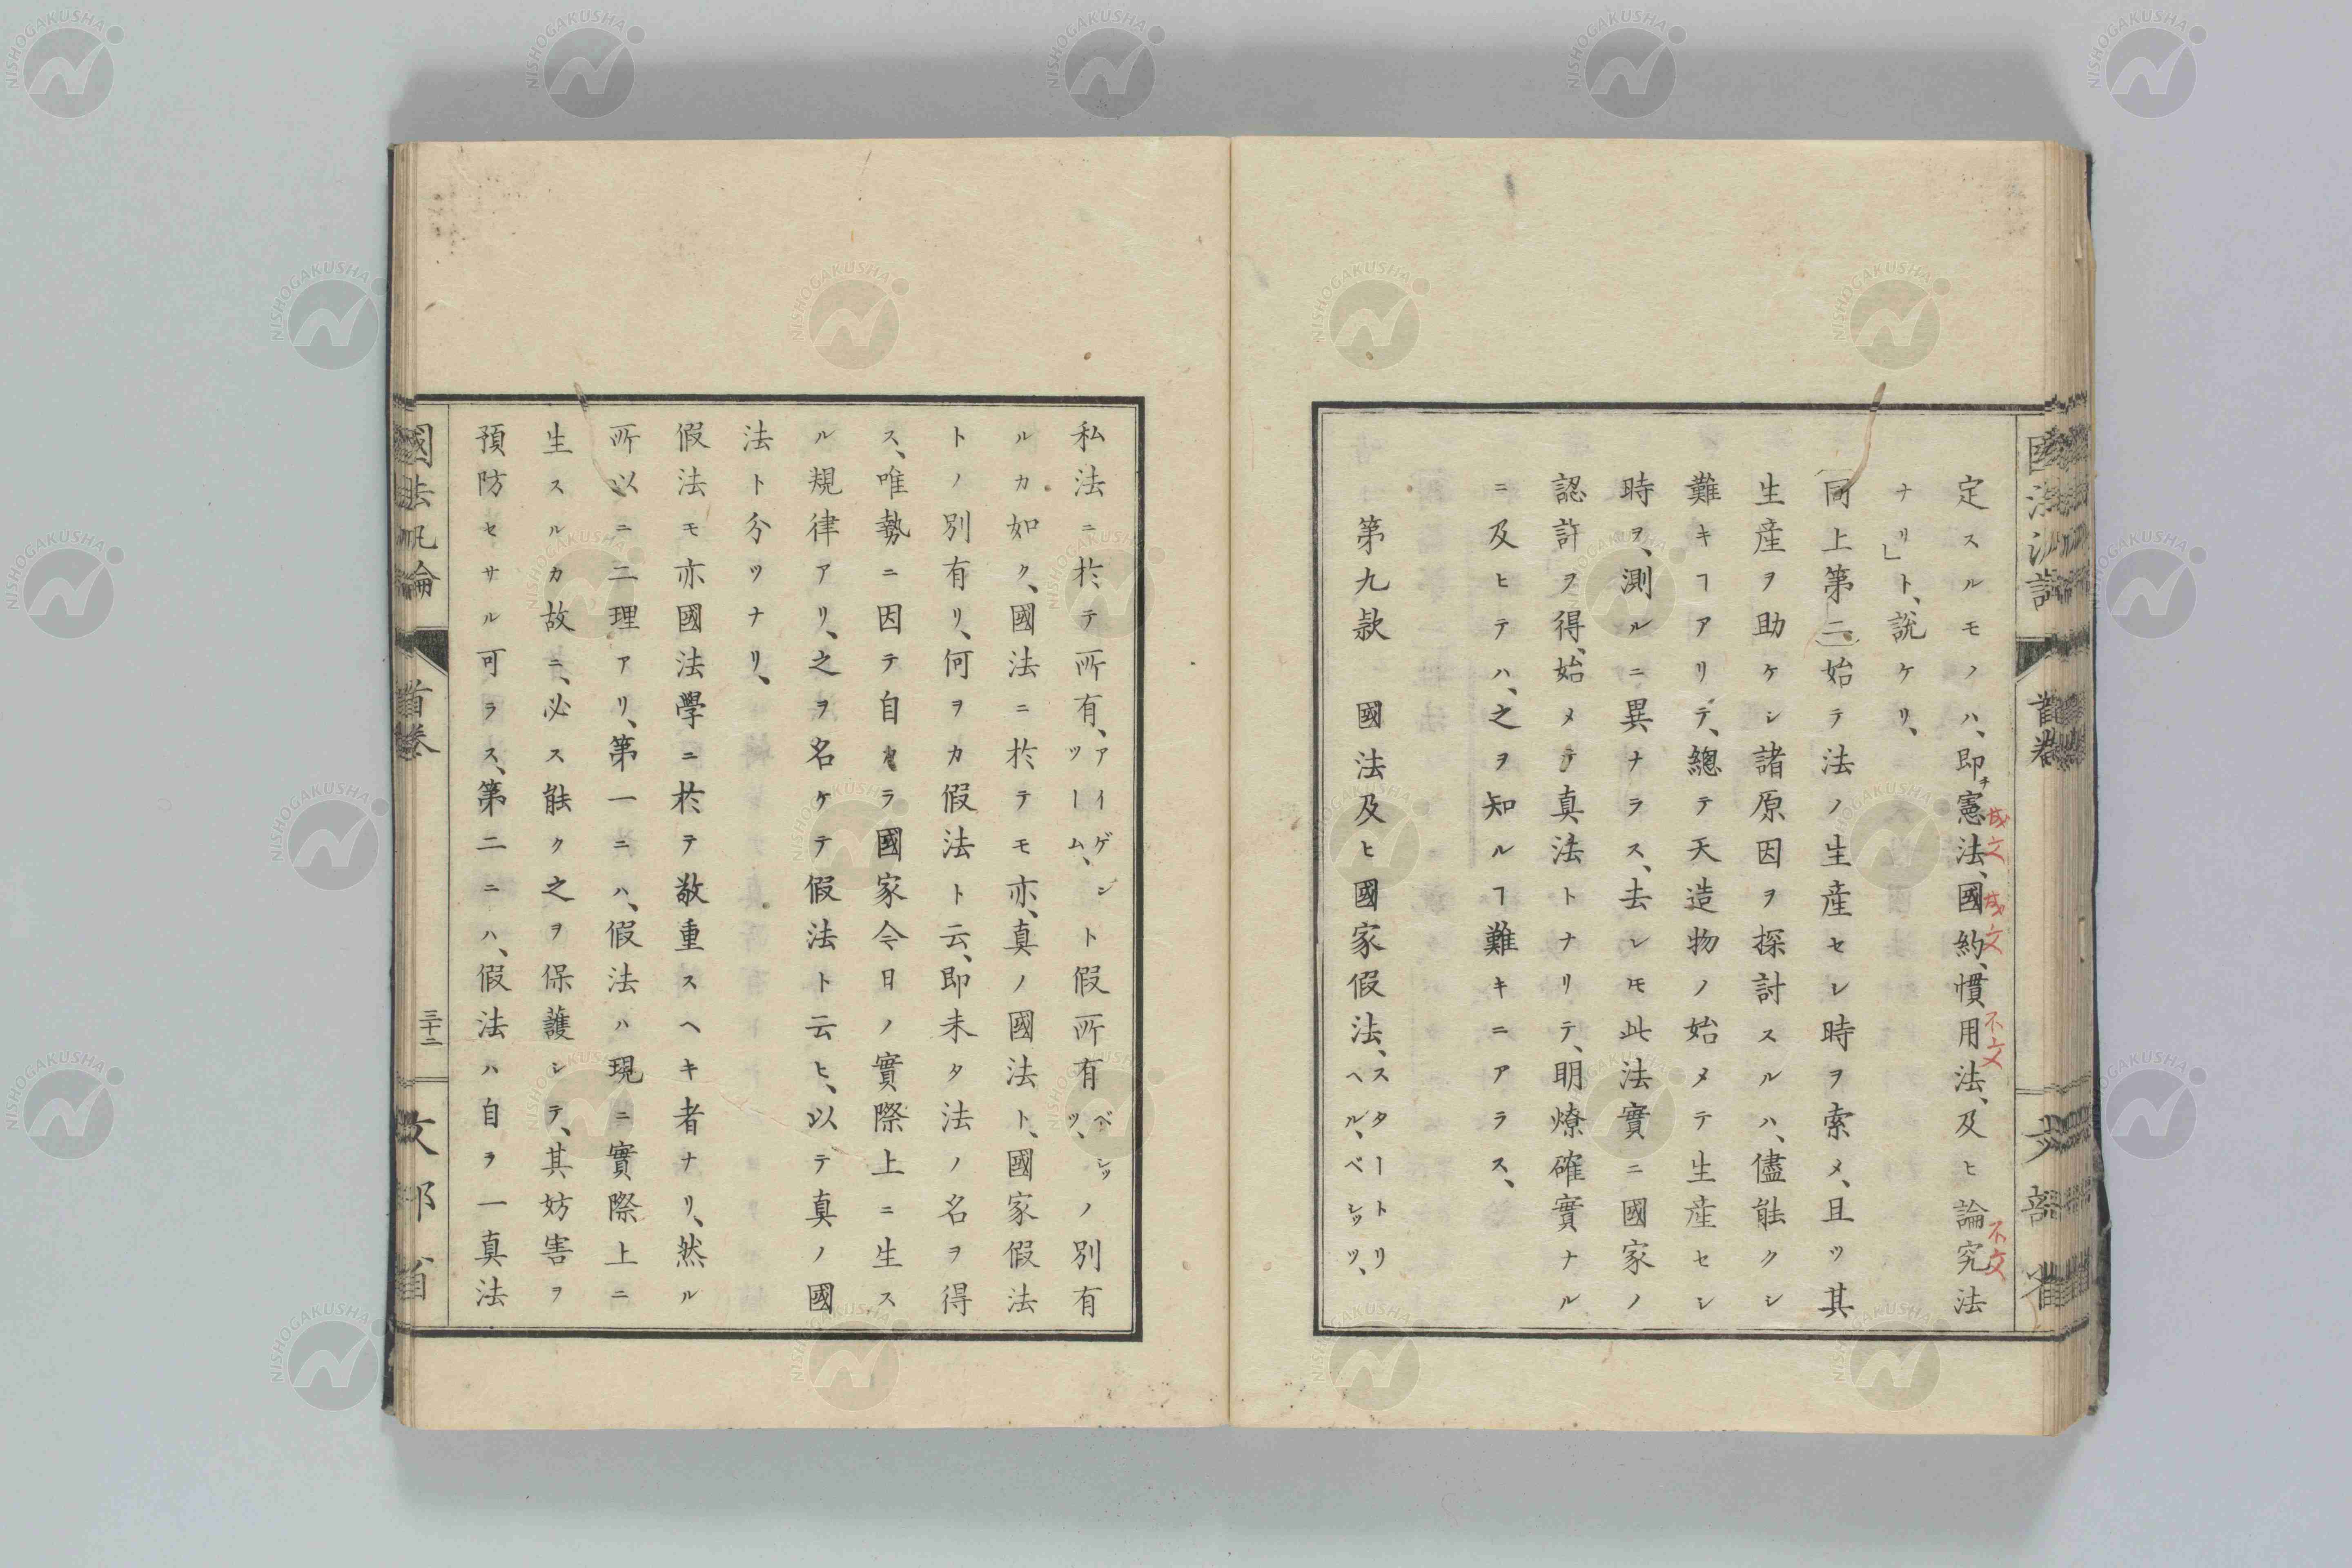 定スルモノハ、即チ憲法、國約、慣用法、及ヒ論究法
成文
成文
不文
不文
ナリ」ト、說ケリ、
同上第二始テ法ノ生産セシ時ヲ索メ、且ツ其
生産ヲ助ケシ諸原因ヲ探討スルハ、儘能クシ
難キヿアリテ、總テ天造物ノ始メテ生産セシ
時ヲ、測ルニ異ナラス、去レモ此法實ニ國家ノ
認許ヲ得、始メテ真法トナリテ、明燎確實ナル
ニ及ヒテハ、之ヲ知ルヿ難キニアラス、
第九款 國法及ヒ國家假法、スタートリヘル、ベシッツ、
私法ニ於テ所有、アイゲンツーム、ト假所有ベシッツ、ノ別有
ルカ如ク、國法ニ於テモ亦、真ノ國法ト、國家假法
トノ別有リ、何ヲカ假法ト云、即未タ法ノ名ヲ得
ス、唯勢ニ因テ自カラ國家今日ノ實際上ニ生ス
ル規律アリ、之ヲ名ケテ假法ト云ヒ、以テ真ノ國
法ト分ツナリ、
假法モ亦國法學ニ於テ敬重スヘキ者ナリ、然ル
所以ニ二理アリ、第一ニハ、假法ハ現ニ實際上ニ
生スルカ故ニ、必ス能ク之ヲ保護シテ、其妨害ヲ
預防セサル可ラス、第二ニハ、假法ハ自ヲ一真法
國法汎論 首卷 三十二 文部省